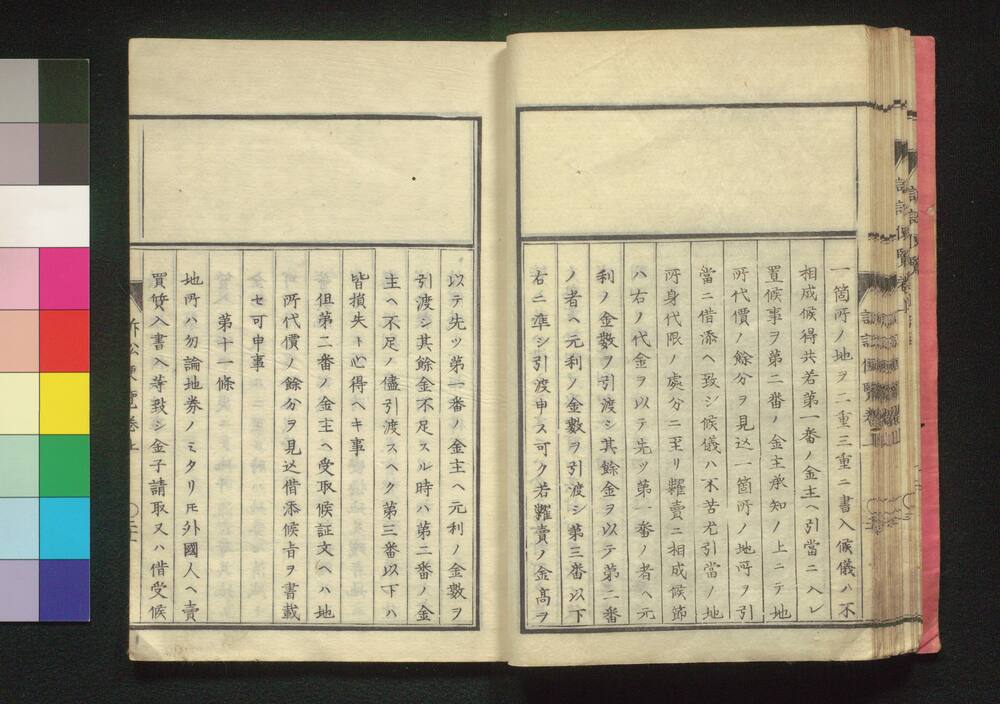 一箇所ノ地ヲ二重三重ニ書入候儀ハ不
相成候得共若第一番ノ金主ヘ引當ニ入レ
置候事ヲ第二番ノ金主承知ノ上ニテ地
所代價ノ餘分ヲ見込一箇所ノ地所ヲ引
當ニ借添ヘ致シ候儀ハ不苦尤引當ノ地
所身代限ノ處分ニ至リ糶賣ニ相成候節
ハ右ノ代金ヲ以テ先ツ第一番ノ者ヘ元
利ノ金數ヲ引渡シ其餘金ヲ以テ第二番
ノ者ヘ元利ノ金數ヲ引渡シ第三番以下
右ニ準シ引渡申ス可ク若糶賣ノ金高ヲ
以テ先ツ第一番ノ金主ヘ元利ノ金數ヲ
引渡シ其餘金不足スル時ハ第二番ノ金
主ヘ不足ノ儘引渡スヘク第三番以下ハ
皆損失ト心得ヘキ事
但第二番ノ金主ヘ受取候証文ヘハ地
所代價ノ餘分ヲ見込借添候旨ヲ書載
セ可申事
第十一條
地所ハ勿論地券ノミタリ𪜈外國人ヘ賣
買質入書入等致シ金子請取又ハ借受候
訴訟便覽卷上